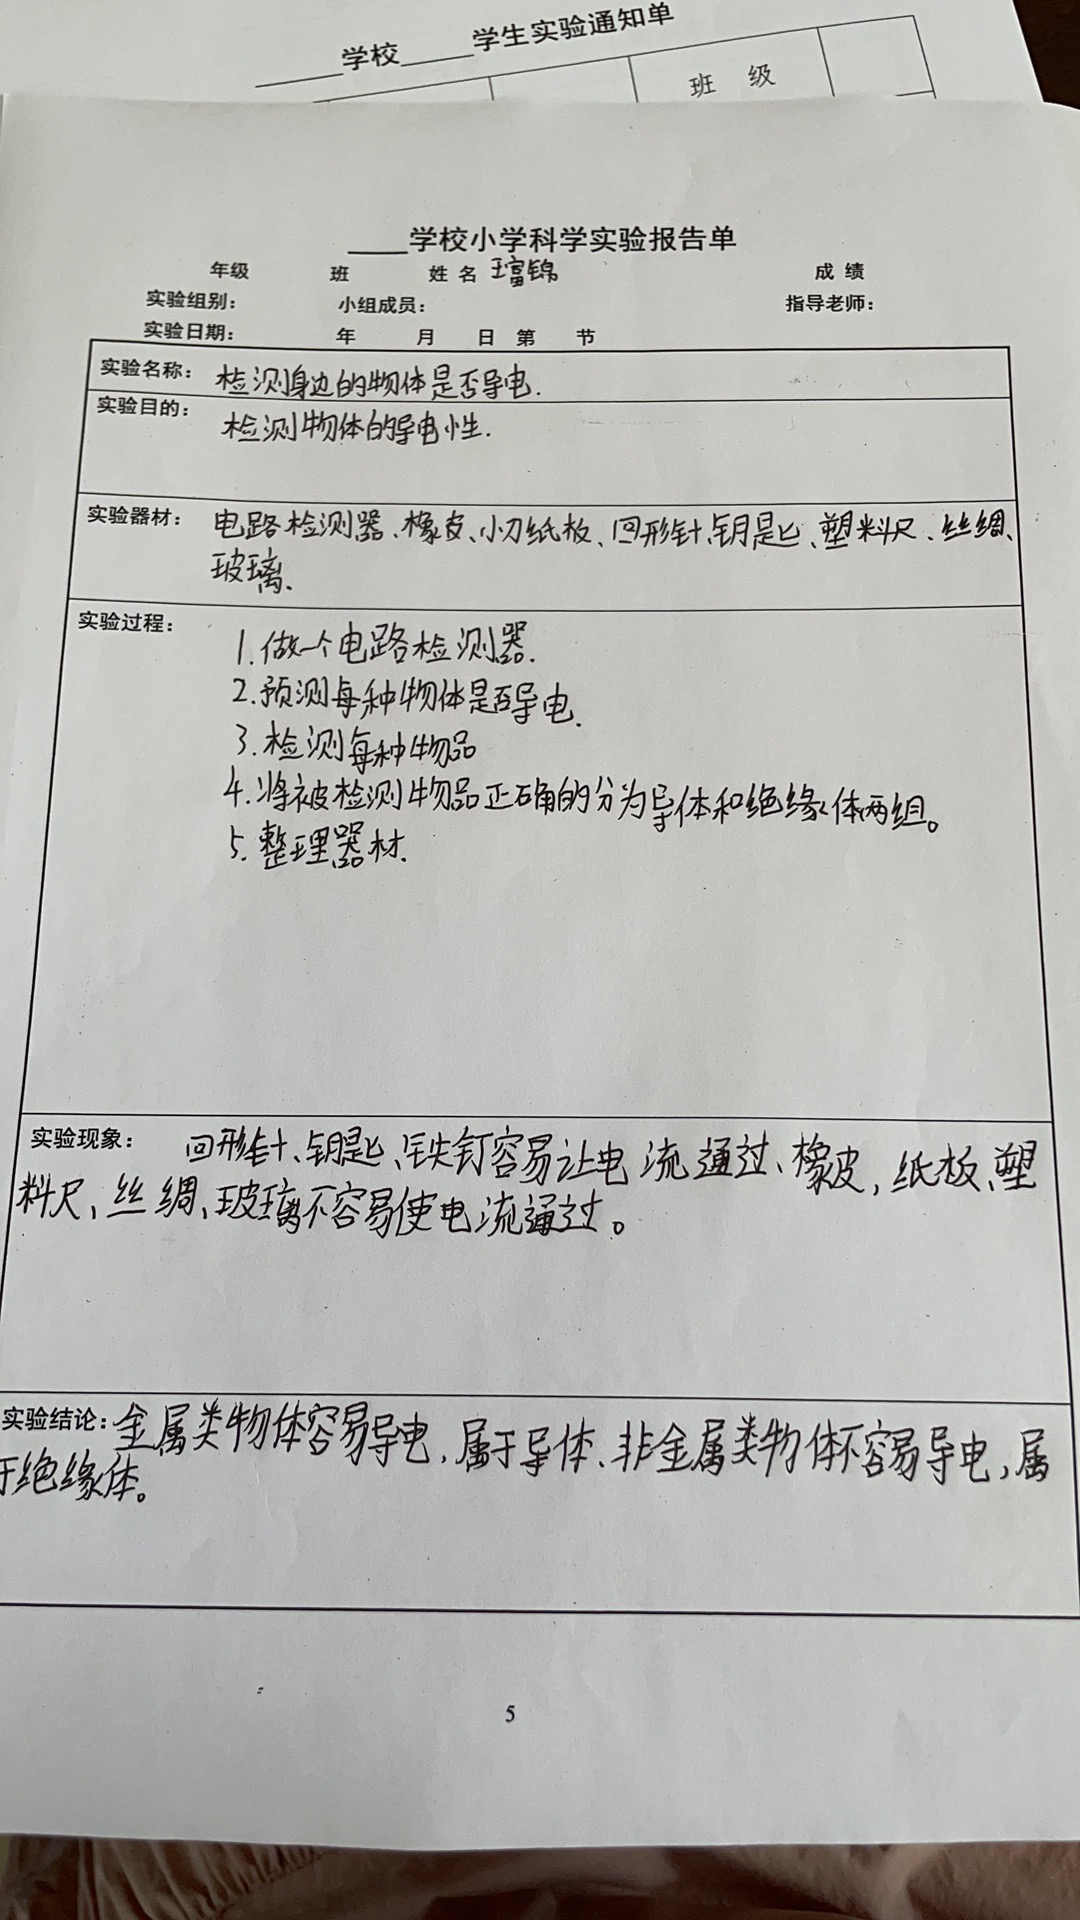 ____学校____学生实验通知单
班 级
____学校小学科学实验报告单
年级 班 姓 名 王富锦 成 绩
实验组别： 小组成员： 指导老师：
实验日期： 年 月 日 第 节
实验名称： 检测身边的物体是否导电.
实验目的： 检测物体的导电性.
实验器材： 电路检测器、橡皮、小刀纸板、回形针、钥匙、塑料尺、丝绸、
玻璃.
实验过程： 1.做一个电路检测器.
2.预测每种物体是否导电.
3.检测每种物品
4.将被检测物品正确的分为导体和绝缘体两组。
5.整理器材.
实验现象： 回形针、钥匙、铁钉容易让电流通过、橡皮，纸板、塑
料尺、丝绸、玻璃不容易使电流通过。
实验结论：金属类物体容易导电，属于导体、非金属类物体不容易导电，属
于绝缘体。
5